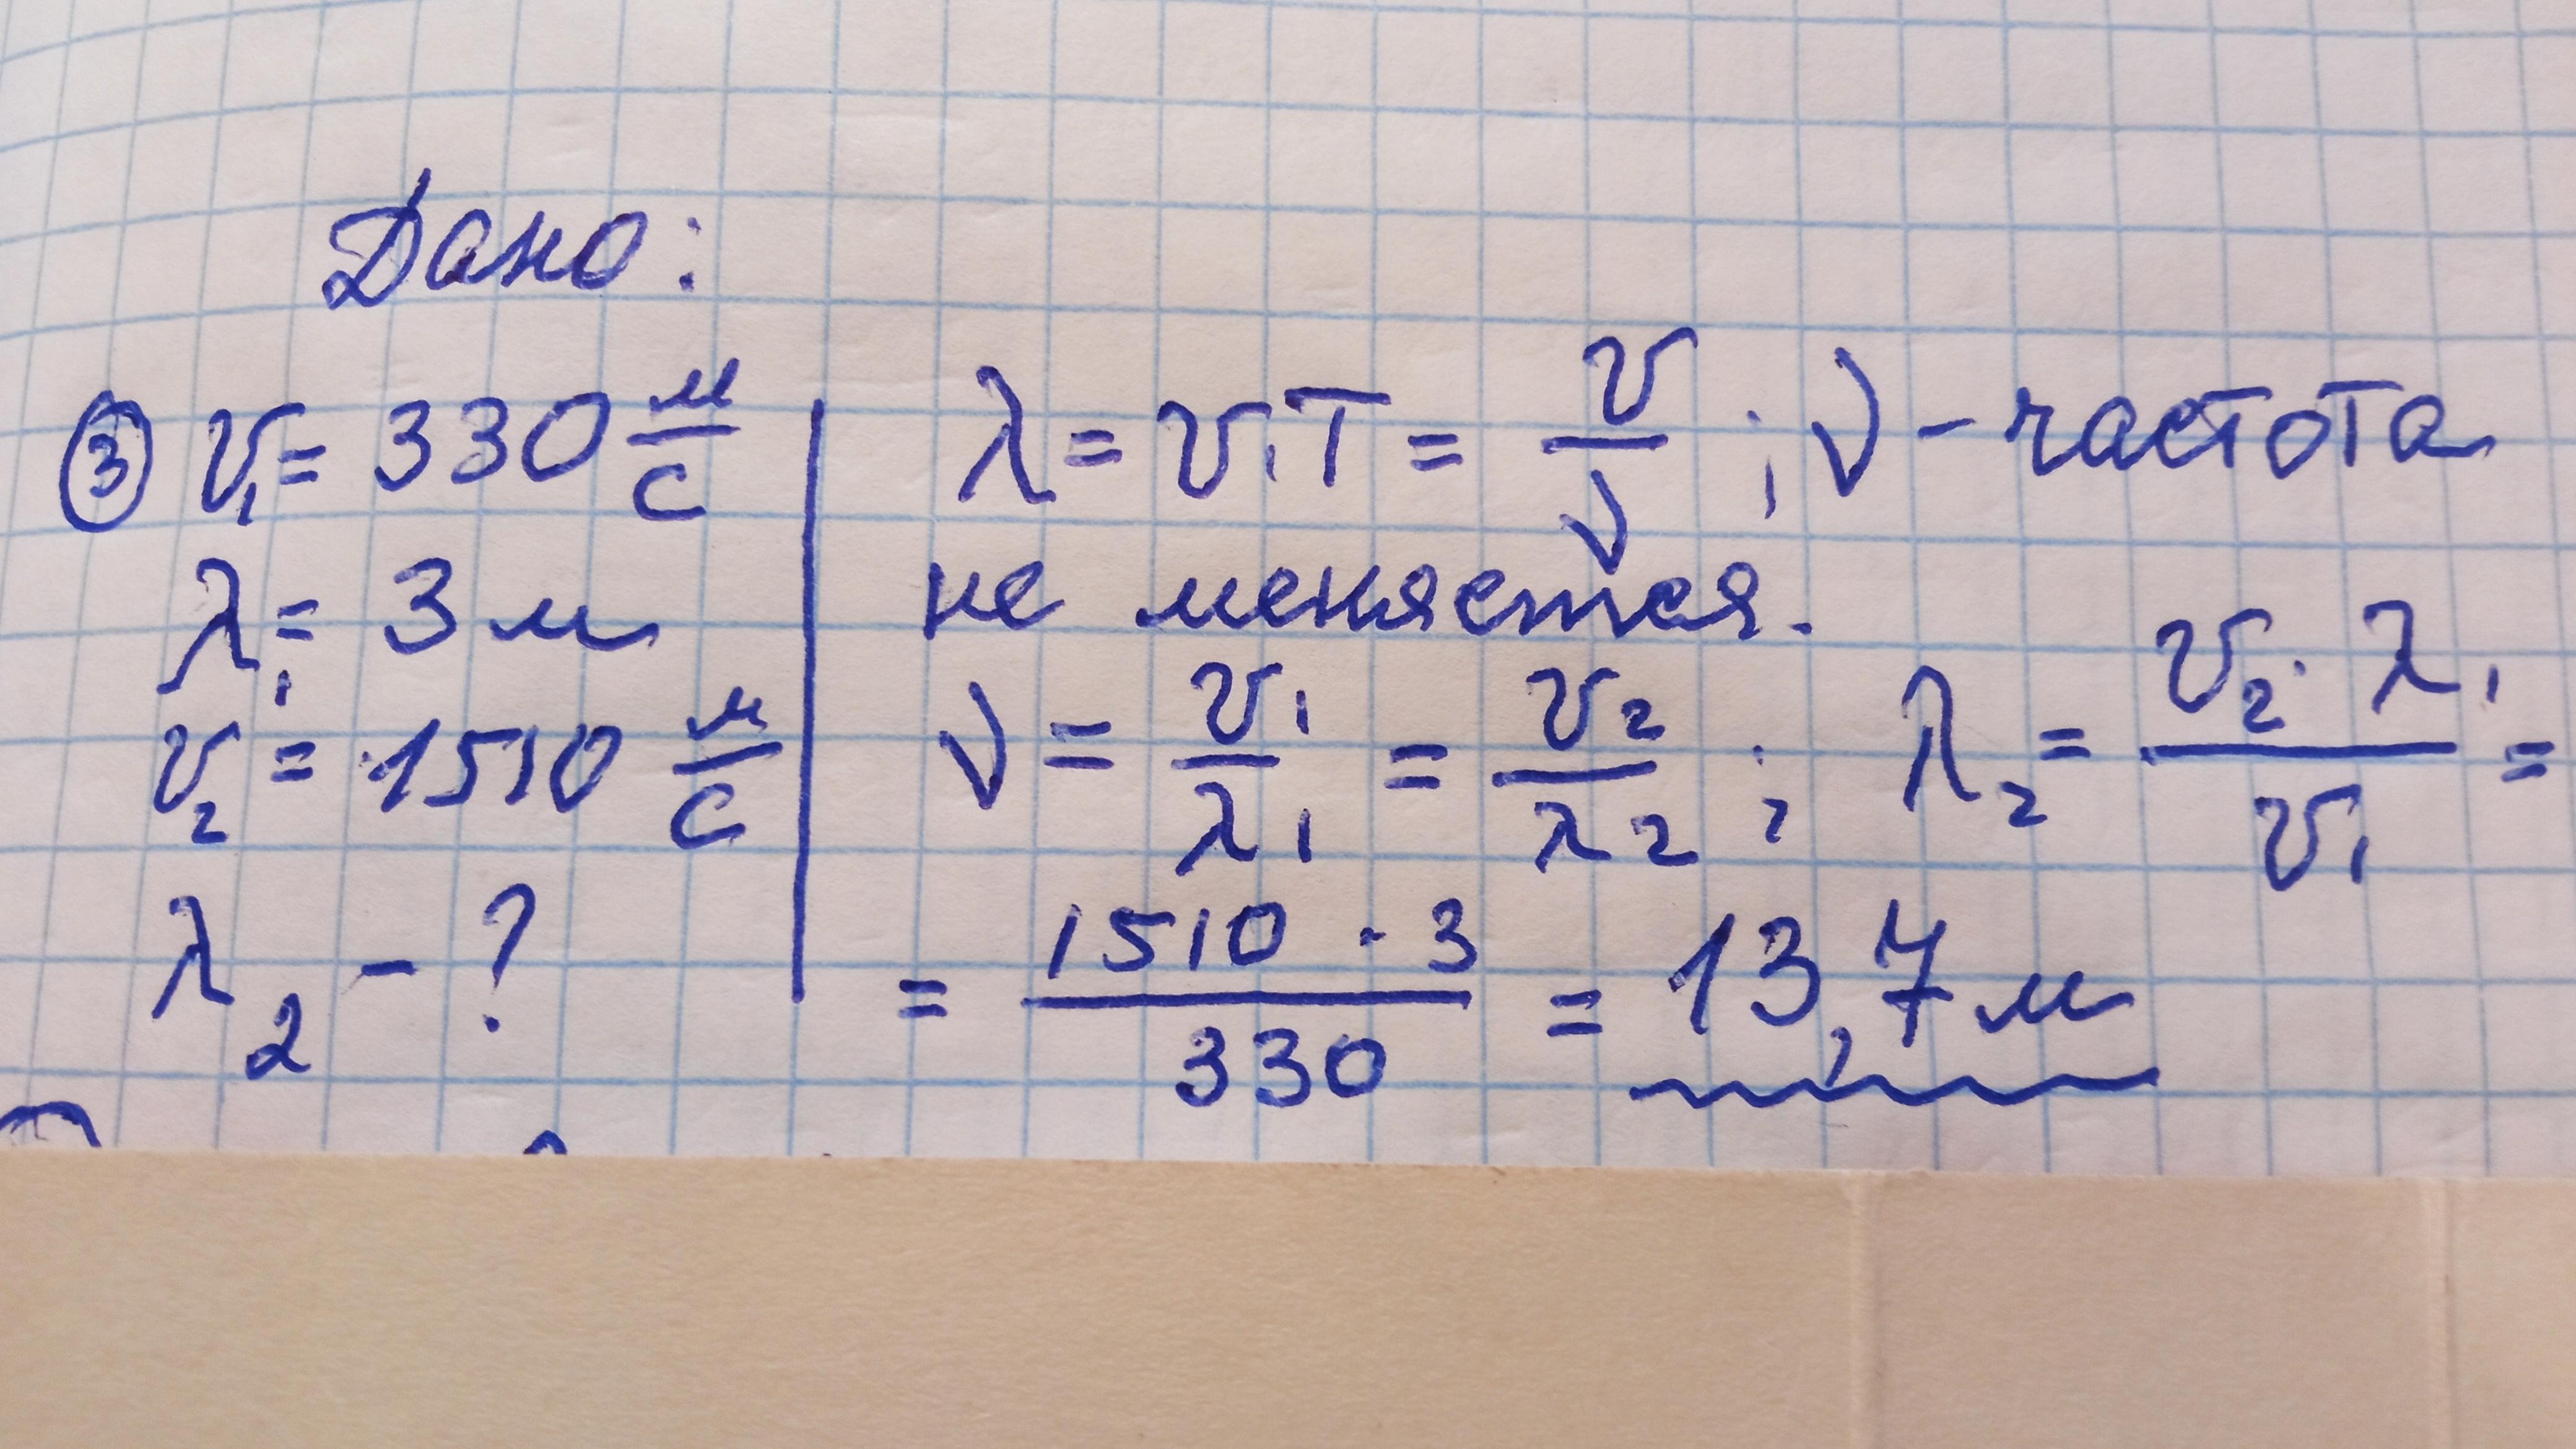 Дано:
③ v₁ = 330 м/с
λ₁ = 3 м
v₂ = 1510 м/с
λ₂ - ?
λ = v₁T = v/ν ; ν - частота
не меняется.
ν = v₁/λ₁ = v₂/λ₂ ; λ₂ = v₂·λ₁/v₁ =
= 1510 · 3/330 = 13,7 м